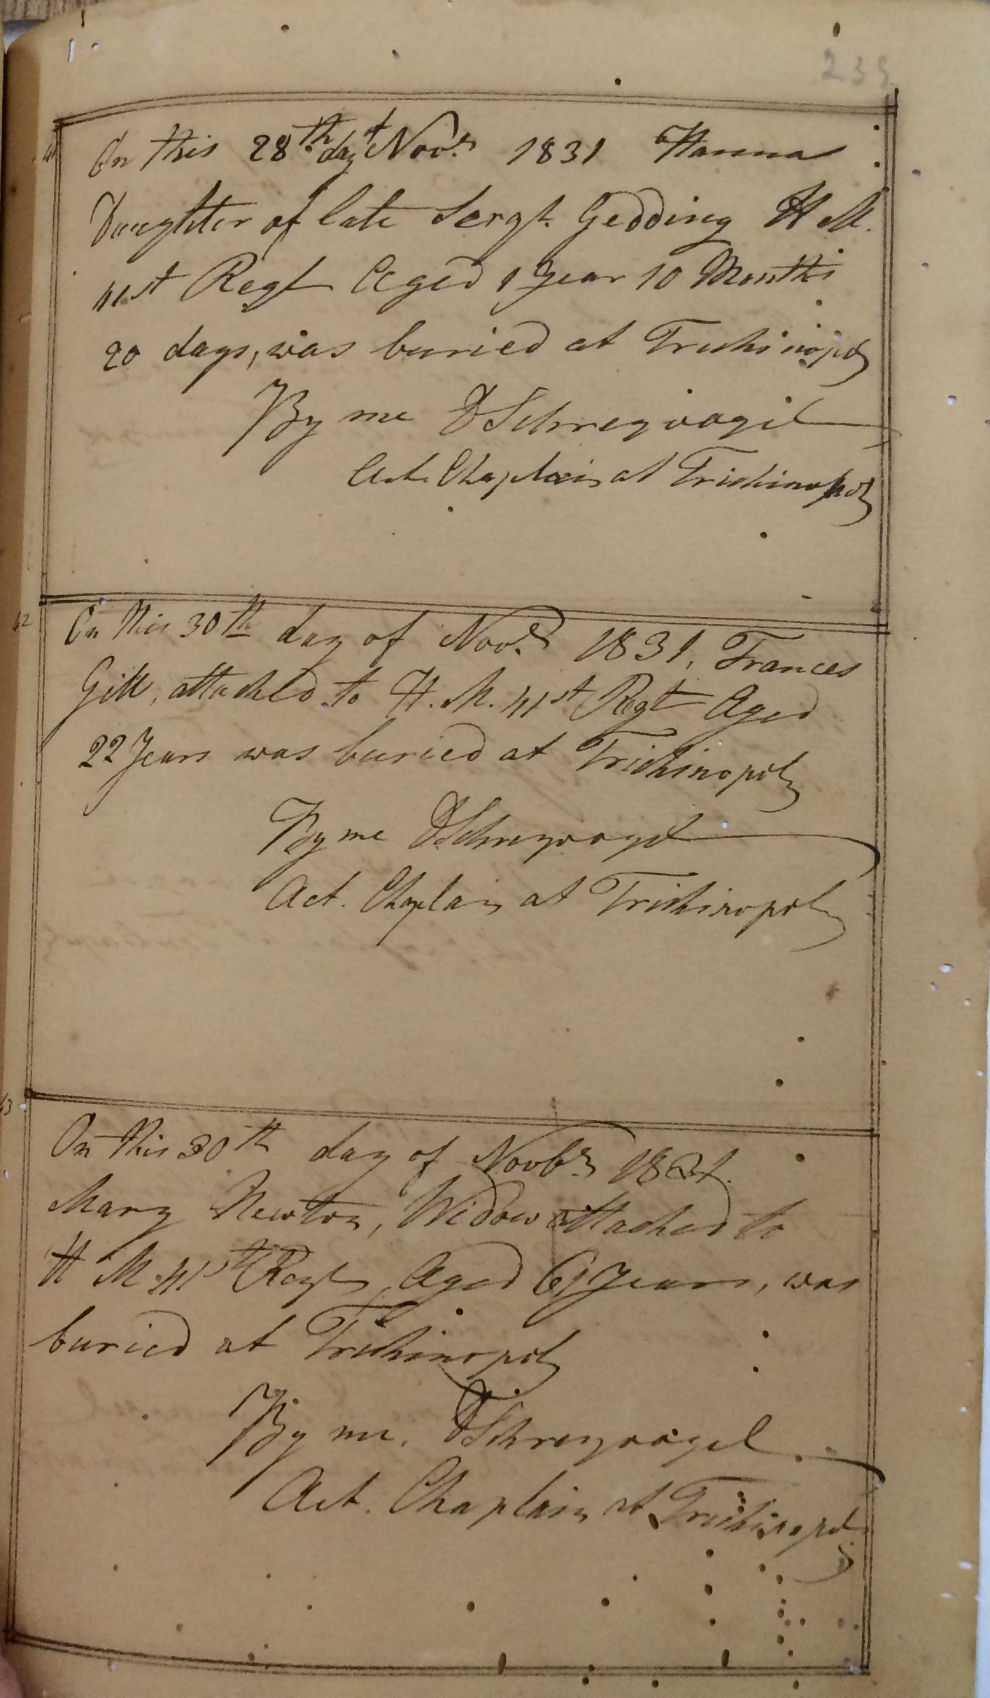 235
41
On this 28th day of Novr. 1831 Hanna
Daughter of late Sergt. Gedding H M.
41st Regt Aged 1 Year 10 Months
20 days, was buried at Trichinopoly
By me DSchreyvogel
Act. Chaplain at Trichinopoly
42
On this 30th day of Novr. 1831, Frances
Gill, attached to H. M. 41st Regt Aged
22 Years was buried at Trichinopoly
By me DSchreyvogel
Act. Chaplain at Trichinopoly
43
On this 30th day of Novbr 1831.
Mary Newton, Widow attached to
H M. 41st Regt, Aged 61 Years, was
buried at Trichinopoly
By me. DSchreyvogel
Act. Chaplain at Trichinopoly